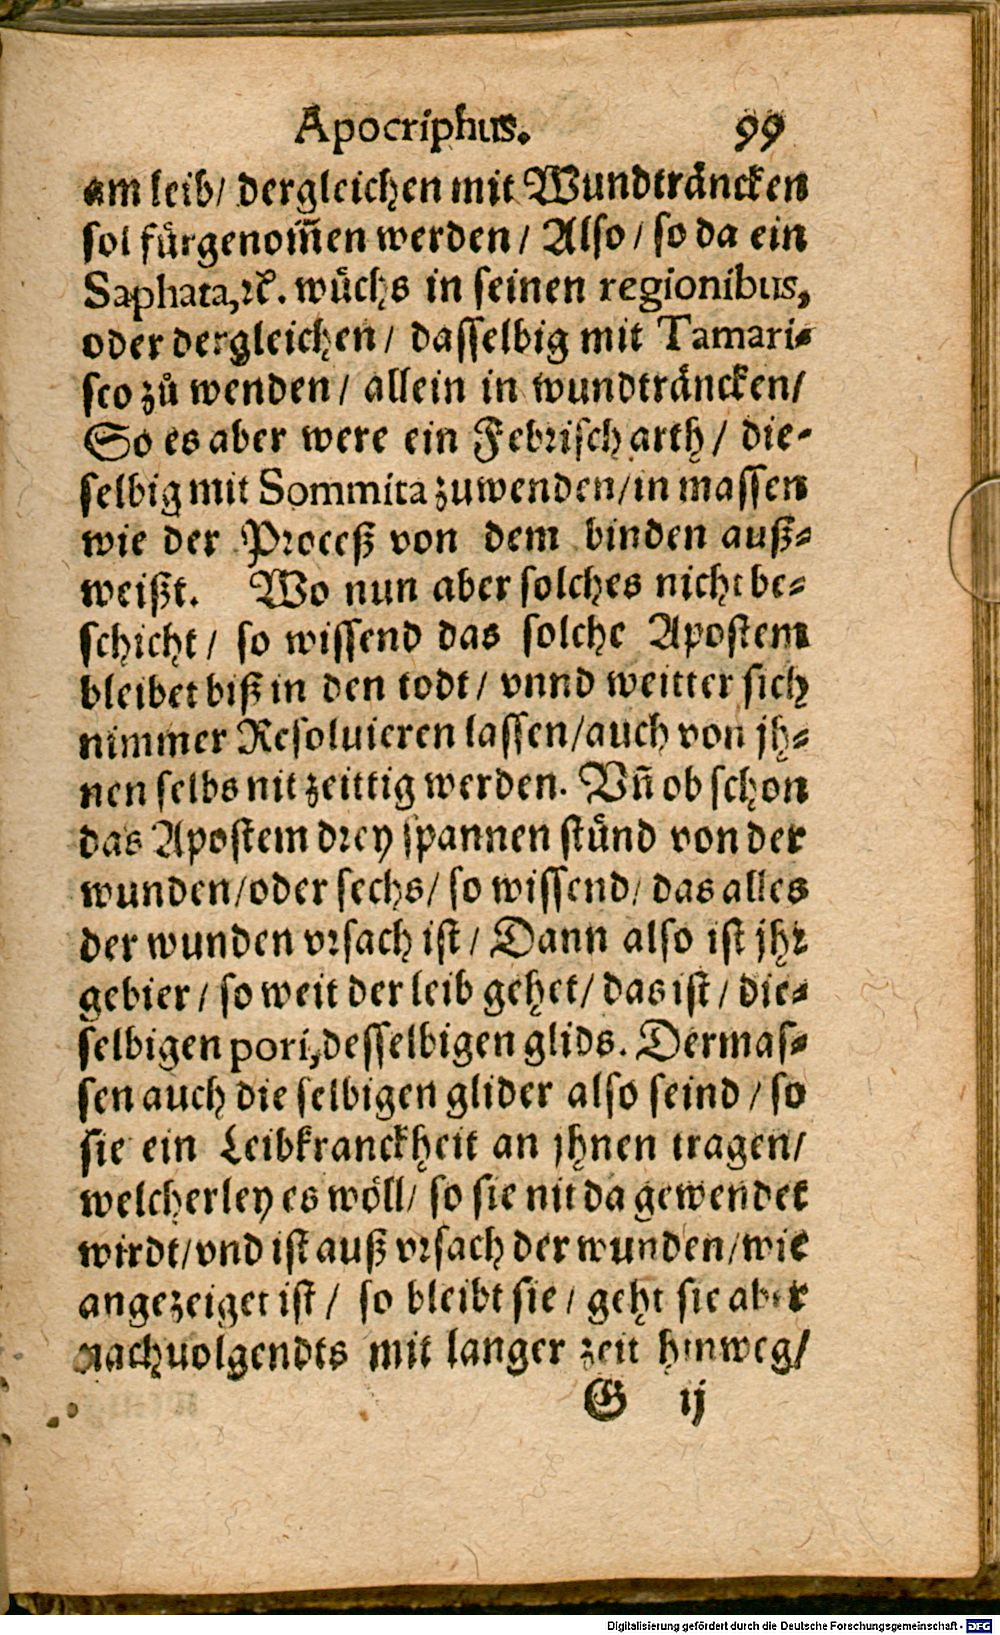 Apocriphus. 99
am leib/ dergleichen mit Wundträncken
sol fürgenom̃en werden/ Also/ so da ein
Saphata, ꝛc. wůchs in seinen regionibus,
oder dergleichen/ dasselbig mit Tamari-
sco zů wenden/ allein in wundträncken/
So es aber were ein Febrisch arth/ die-
selbig mit Sommita zuwenden/ in massen
wie der Proceß von dem binden auß-
weißt. Wo nun aber solches nicht be-
schicht/ so wissend das solche Apostem
bleibet biß in den todt/ vnnd weitter sich
nimmer Resoluieren lassen/ auch von jh-
nen selbs nit zeittig werden. Vñ ob schon
das Apostem drey spannen stünd von der
wunden/ oder sechs/ so wissend/ das alles
der wunden vrsach ist/ Dann also ist jhr
gebier/ so weit der leib gehet/ das ist/ die-
selbigen pori, desselbigen glids. Dermas-
sen auch die selbigen glider also seind/ so
sie ein Leibkranckheit an jhnen tragen/
welcherley es wöll/ so sie nit da gewendet
wirdt/ vnd ist auß vrsach der wunden/ wie
angezeiget ist/ so bleibt sie/ geht sie aber
nachuolgendts mit langer zeit hinweg/
G ij
Digitalisierung gefördert durch die Deutsche Forschungsgemeinschaft - DFG